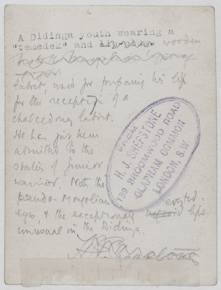 A Didinga youth wearing a
"temedek" and wooden
labret used for preparing his lip
for the reception of a
chalcedony labret.
He has just been
admitted to the
status of junior
warrior. Note the
pseudo-Mongolian
eye, & the exceptionally
lips
unusual in the Didinga.
FROM
H. J. SHELSTONE
CLAPHAM COMMON
LONDON, S.W.